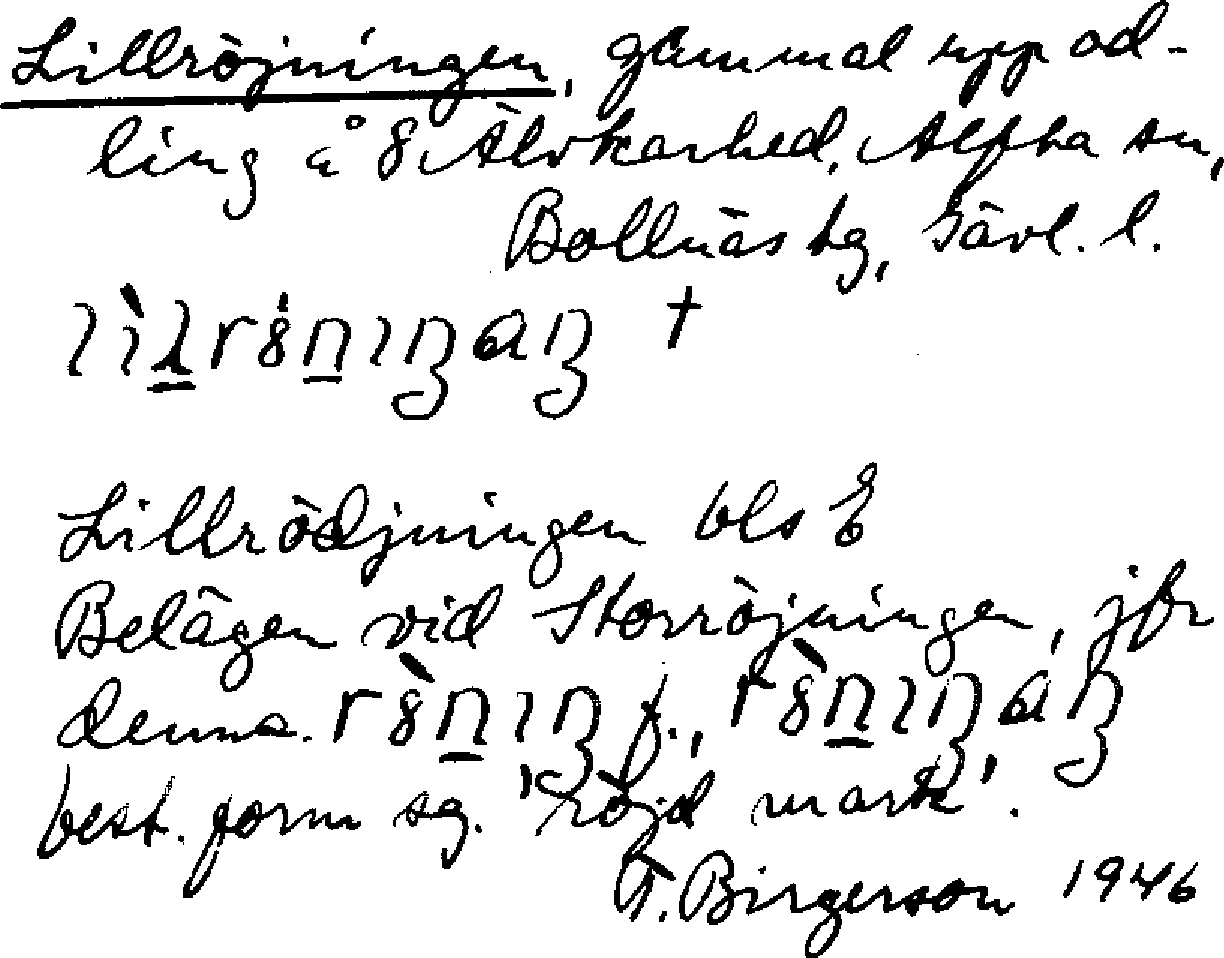 Lillröjningen, gammal uppod-
ling å 8 Älvkarhed, Alfta sn,
Bollnäs tg, Gävl. l.
†
Lillrödjningen bls E
Belägen vid Storröjningen, jfr
denna. f.,
best. form sg. 'röjd mark'.
T. Birgerson 1946